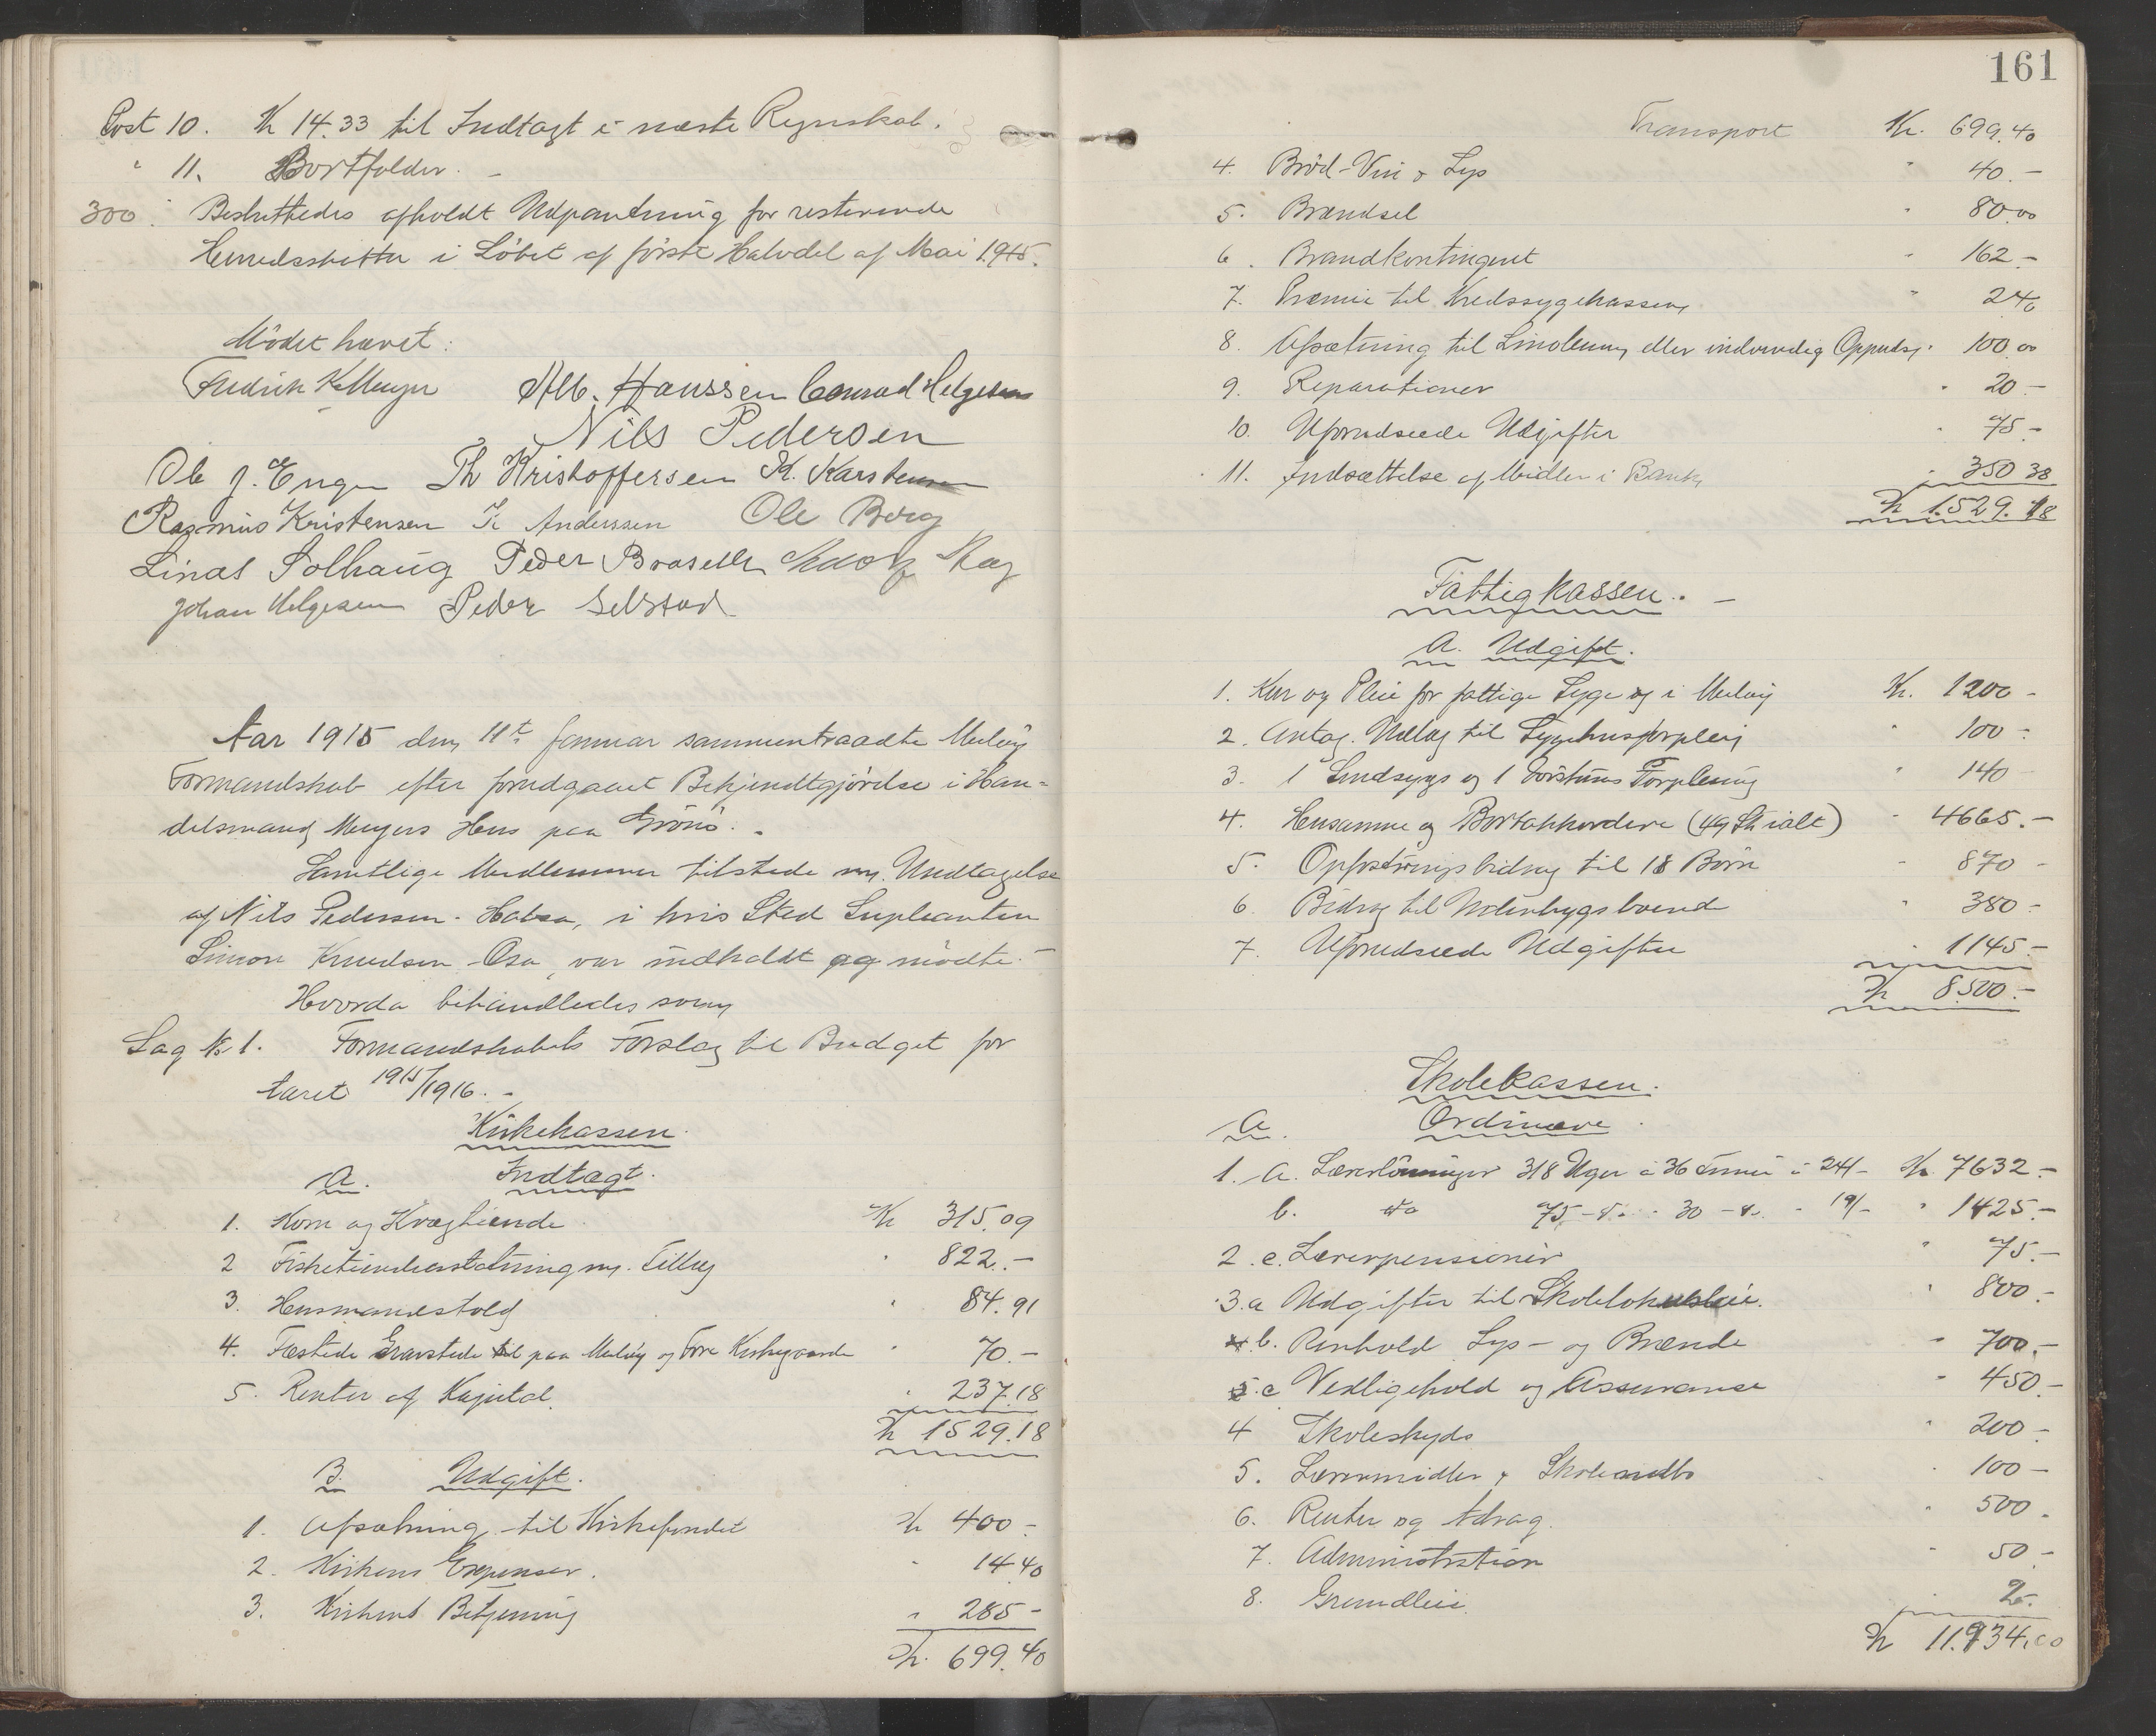 Post 10. Kr 14.33 til Indtægt i næste Regnskab.
" 11. Bortfalder. -
300. Besluttedes afholdt Udpantning for resterende
Herredsskatter i Löbet af förste Halvdel af Mai 1915.
Mödet hævet:
Fredrik K Meyer Alb. Hanssen Conrad Helgesen
Nils Pedersen
Ole J. Engen Th Kristoffersen K. Karstensen
Rasmus Kristensen Anderssen Ole Borg
Linas Solhaug Peder
Johan Helgesen Peder Selstad
Aar 1915 den 11te Januar sammentraadte Melöy
Formandskab efter forudgaaet Bekjendtgjörelse i Han-
delsmand Meyers Hus paa Grönö. -
Samtlige Medlemmer tilstede m. Undtagelse
af Nils Pedersen - Habra, i hvis Sted Supleanten
Simon Knudsen - Osa, var indkaldt og mödte. -
Hvorda behandledes som
Sag No 1. Formandskabets Forslag til Budget for
Aaret 1915/1916. -
Kirkekassen.
A. Indtægt.
1. Korn og Kvægtiende Kr 315.09
2 Fisketiendeerstatning m. Tillæg " 822. -
3. Husmandstold " 84.91
4. Fæstede Gravstede til paa Melöy og Fore Kirkegaarde " 70. -
5. Renter af Kapital. " 237.18
Kr 1529.18
B. Udgift.
1. Afsætning til Kirkefondet Kr 400 -
2. Kirkens Expenser. " 14.40
3. Kirkens Betjening " 285 -
Kr. 699.40
161
Transport Kr. 699.40
4. Bröd - Vin & Lys " 40. -
5. Brændsel " 80.00
6. Brandkontingent " 162 -
7. Præmie til Kredssygekassen
8. Afsætning til Linoleum eller indvendig Oppuds. " 100.00
9. Reparationer " 20 -
10. Uforudseede Udgifter " 75 -
11. Indsættelse af Midler i Bank " 350 38
Kr 1.529.18
Fattigkassen. -
A. Udgift.
1. Kur og Pleie for fattige Syge og i Melöy Kr. 1200 -
2. Antag. Udlæg til Sygehusforpleing " 100 -
3. 1 Sindsygs og 1 Forpleining " 140 -
4. Husarme og Bortakkordere (49 Stk ialt) " 4665. -
5. Opfostringsbidrag til 18 Börn " 870 -
6. Bidrag til Udenbygsboende " 380 -
7. Uforudseede Udgifter " 1145 -
Kr 8500. -
Skolekassen.
A. Ordinære.
1. a. Lærerlönninger 318 Uger à 36 Timer à 24/- Kr. 7632. -
b. do 75 - d. - 30 - d. - 19/- " 1425. -
2. c. Lærerpensioner " 75. -
3. a Udgifter til Skolelokalsleie. " 800. -
b. Renhold Lys- og Brænde " 700. -
c Vedligehold og Assurance " 450. -
4 Skoleskyds " 200 -
5. Læremidler & " 100 -
6. Renter og Advag. " 500.
7. Administration " 50 -
8. Grundleie. " 2. -
Kr 11.934.00